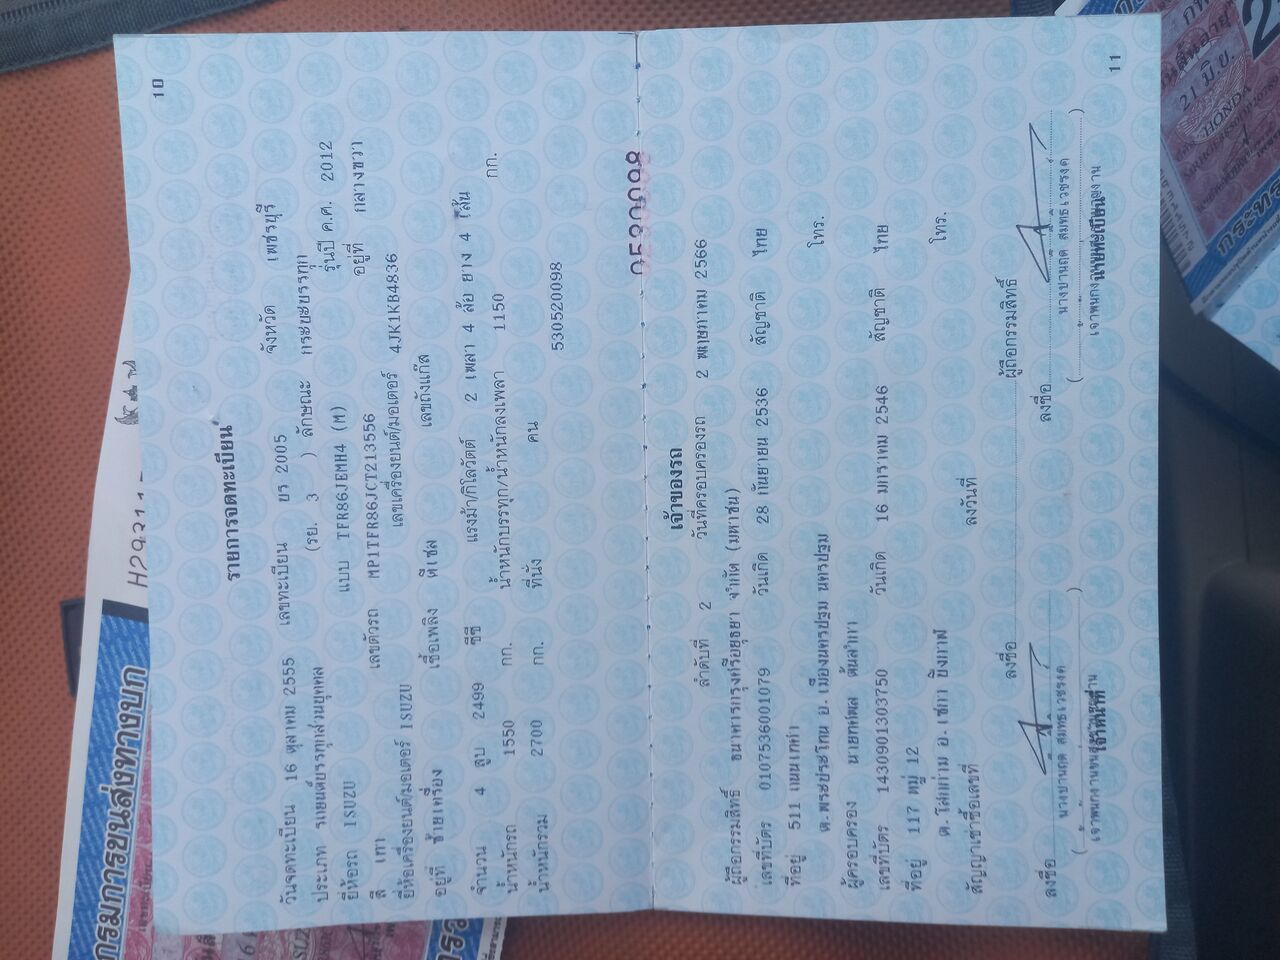 10
รายการจดทะเบียน
วันจดทะเบียน 16 ตุลาคม 2555 เลขทะเบียน บร 2005 จังหวัด เพชรบุรี
ประเภท รถยนต์บรรทุกส่วนบุคคล (รย. 3 ) ลักษณะ กระบะบรรทุก
ยี่ห้อรถ ISUZU แบบ TFR86JEMH4 (M) รุ่นปี ค.ศ. 2012
สี เทา เลขตัวรถ MP1TFR86JCT213556 อยู่ที่ กลางขวา
ยี่ห้อเครื่องยนต์/มอเตอร์ ISUZU เลขเครื่องยนต์/มอเตอร์ 4JK1KB4836
อยู่ที่ ซ้ายเครื่อง เชื้อเพลิง ดีเซล เลขถังแก๊ส
จำนวน 4 สูบ 2499 ซีซี แรงม้า/กิโลวัตต์ 2 เพลา 4 ล้อ ยาง 4 เส้น
น้ำหนักรถ 1550 กก. น้ำหนักบรรทุก/น้ำหนักลงเพลา 1150 กก.
น้ำหนักรวม 2700 กก. ที่นั่ง คน
530520098
เจ้าของรถ
ลำดับที่ 2 วันที่ครอบครองรถ 2 พฤษภาคม 2566
ผู้ถือกรรมสิทธิ์ ธนาคารกรุงศรีอยุธยา จำกัด (มหาชน)
เลขที่บัตร 0107536001079 วันเกิด 28 กันยายน 2536 สัญชาติ ไทย
ที่อยู่ 511 ถนนเทศา
ต.พระประโทน อ.เมืองนครปฐม นครปฐม โทร.
ผู้ครอบครอง
เลขที่บัตร 1430901303750 วันเกิด 16 มกราคม 2546 สัญชาติ ไทย
ที่อยู่ 117 หมู่ 12
ต.โสกก่าม อ.เซกา บึงกาฬ โทร.
สัญญาเช่าซื้อเลขที่ ลงวันที่
ลงชื่อ ผู้ถือกรรมสิทธิ์
ลงชื่อ ลงชื่อ
11
กรมการขนส่งทางบก
HONDA
21 มิ.ย.